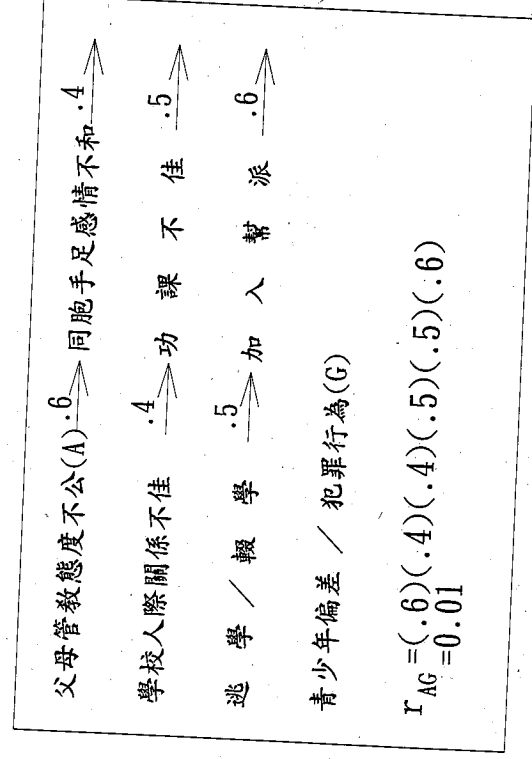 父母管教態度不公(A) .6→ 同胞手足感情不和 .4→
學校人際關係不佳 .4→ 功課不佳 .5→
逃學/輟學 .5→ 加入幫派 .6→
青少年偏差/犯罪行為(G)
r AG =(.6)(.4)(.4)(.5)(.5)(.6)
=0.01